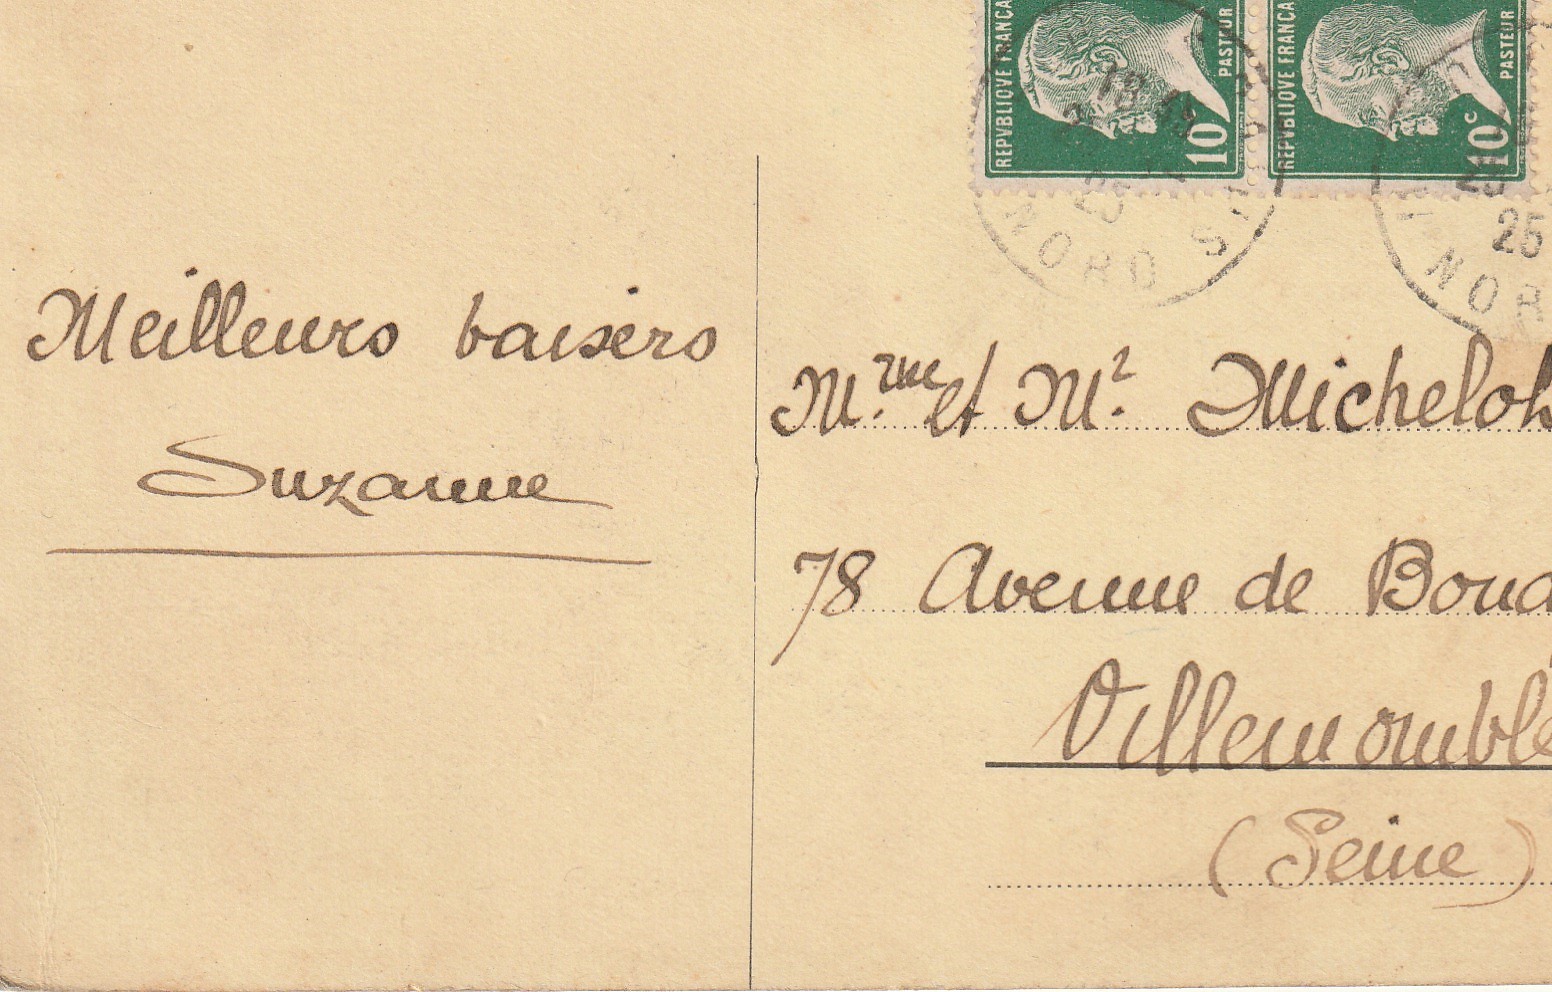 REPVBLIQVE FRANCA
PASTEUR
10
REPVBLIQVE FRANCA
PASTEUR
10c
18
25
NORD
25
NOR
Meilleurs baisers
Suzanne
Mme et Mr Micheloh
78 Avenue de Bond
Villemomble
(Seine)